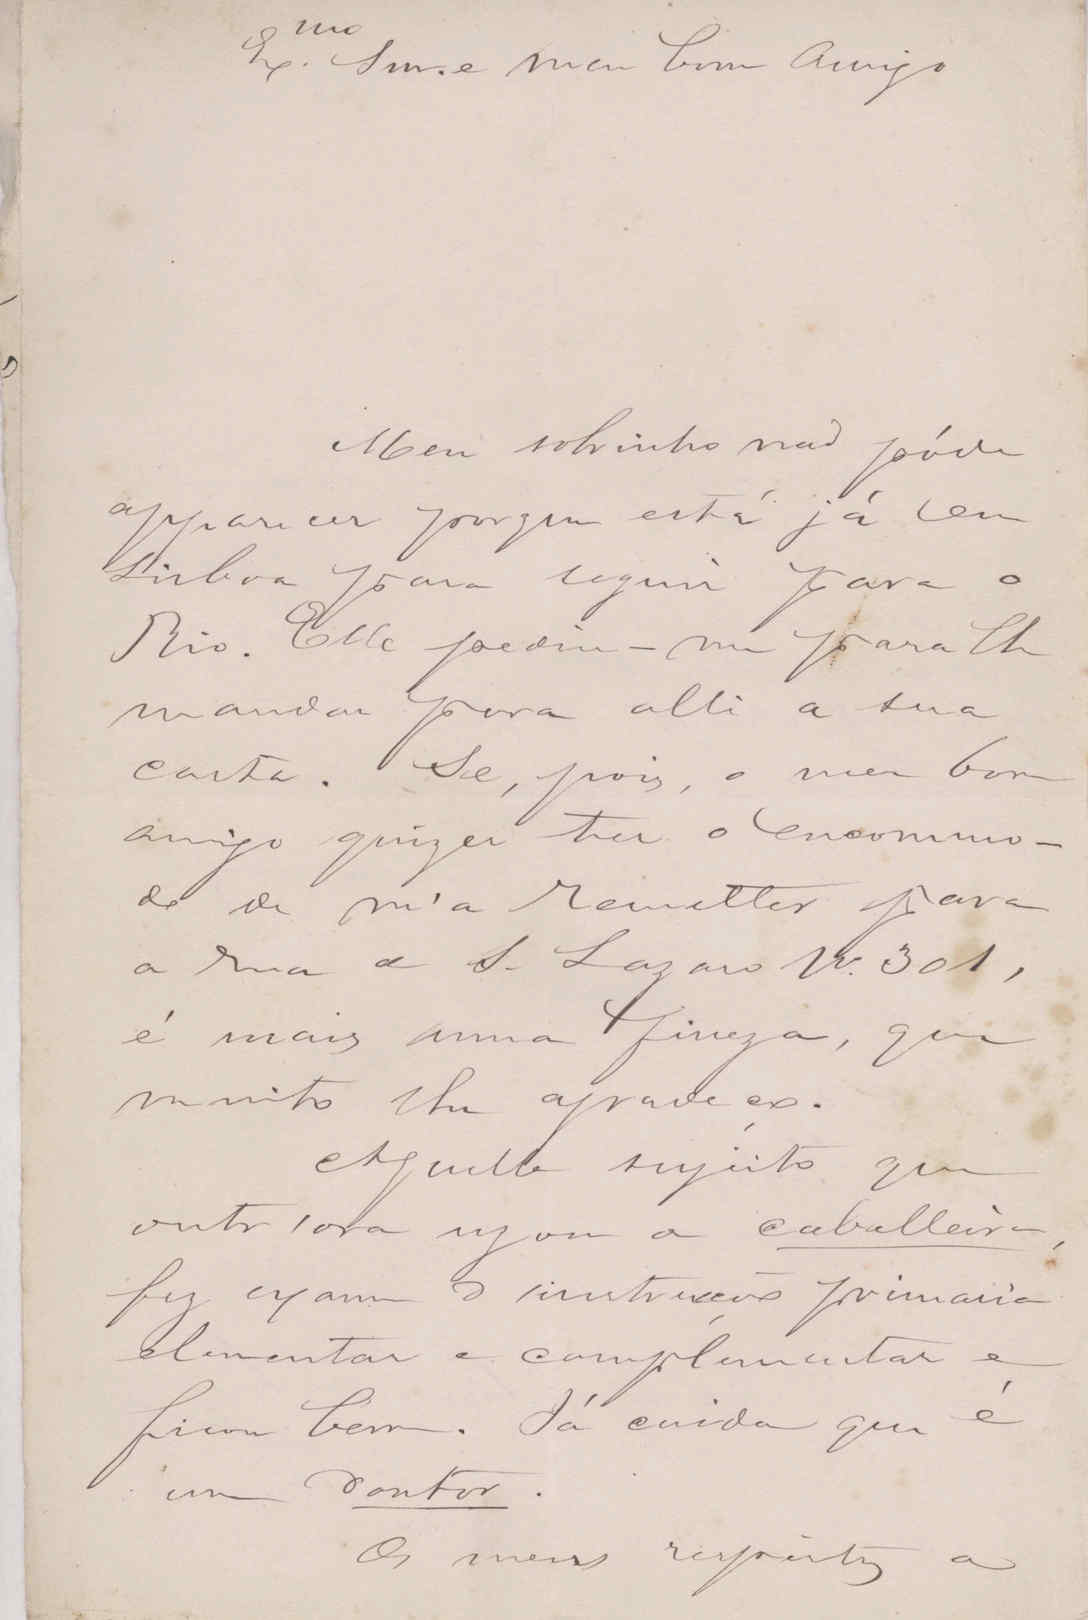 Ex.mo Snr. e meu bom Amigo
Meu sobrinho não póde
apparecer porque está já em
Lisboa para seguir para o
Rio. Elle pediu-me para lhe
mandar para alli a sua
carta. Se, pois, o meu bom
amigo quizer ter o encommo-
do de m'a remetter para
a rua de S. Lazaro N. 301,
é mais uma fineza, que
muito lhe agradeço.
Aquelle sujeito que
outr'ora uzou a caballeira,
fez exame d instrucção primaria
elementar e complementar e
ficou bem. Já cuida que é
um doutor.
Os meus respeitos a